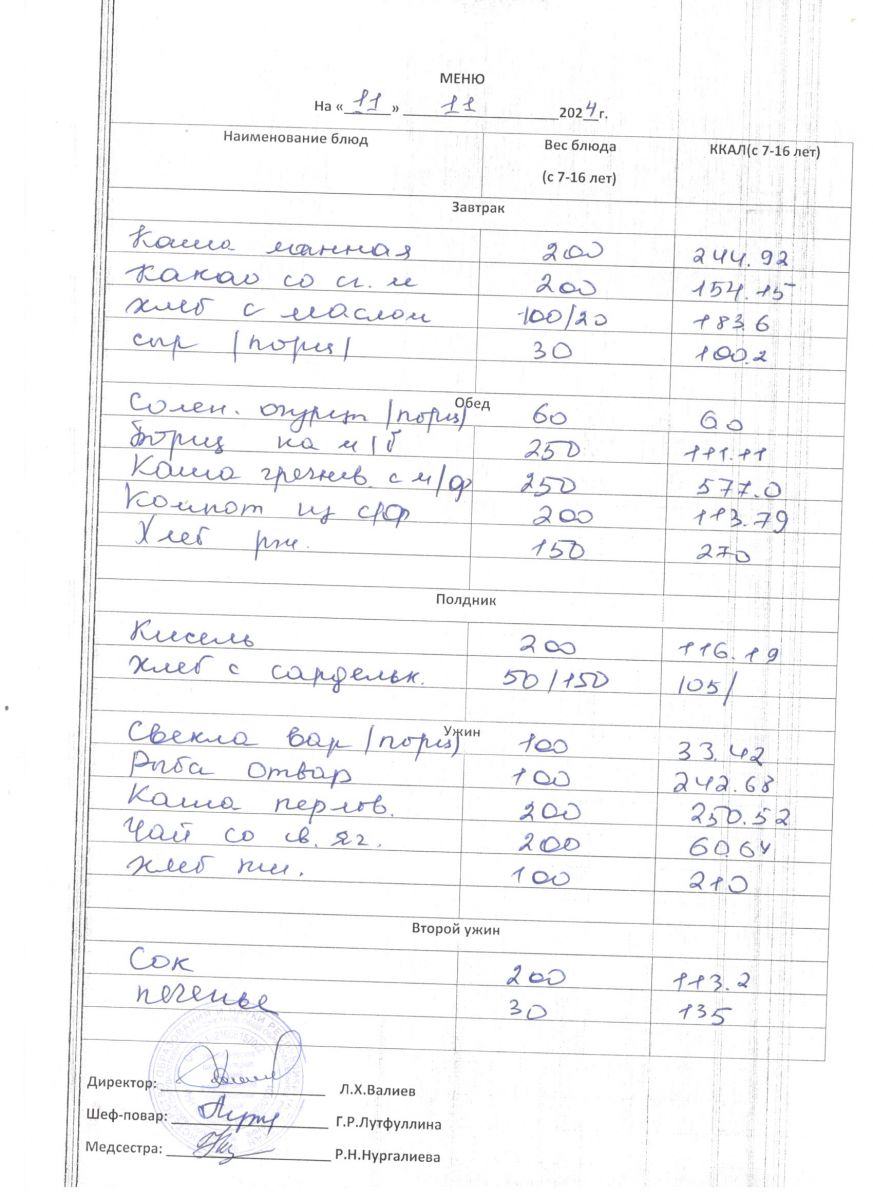 МЕНЮ
На «11» 11 2024г.
Наименование блюд Вес блюда (с 7-16 лет) ККАЛ(с 7-16 лет)
Завтрак
Каша манная 200 244.92
Какао со сг. м 200 154.15
Хлеб с маслом 100/20 183.6
Сыр /порц/ 30 100.2
Обед
Солен. огурец /порц/ 60 60
Борщ на м/б 250 111.11
Каша гречнев. с м/ф 250 577.0
Компот из с/ф 200 113.79
Хлеб рж. 150 270
Полдник
Кисель 200 116.19
Хлеб с сардельк. 50/150 105/
Ужин
Свекла вар /порц/ 100 33.42
Рыба отвар 100 242.68
Каша перлов. 200 250.52
Чай со св. яг. 200 60.64
Хлеб пш. 100 210
Второй ужин
Сок 200 113.2
печенье 30 135
Директор: Л.Х.Валиев
Шеф-повар: Г.Р.Лутфуллина
Медсестра: Р.Н.Нургалиева